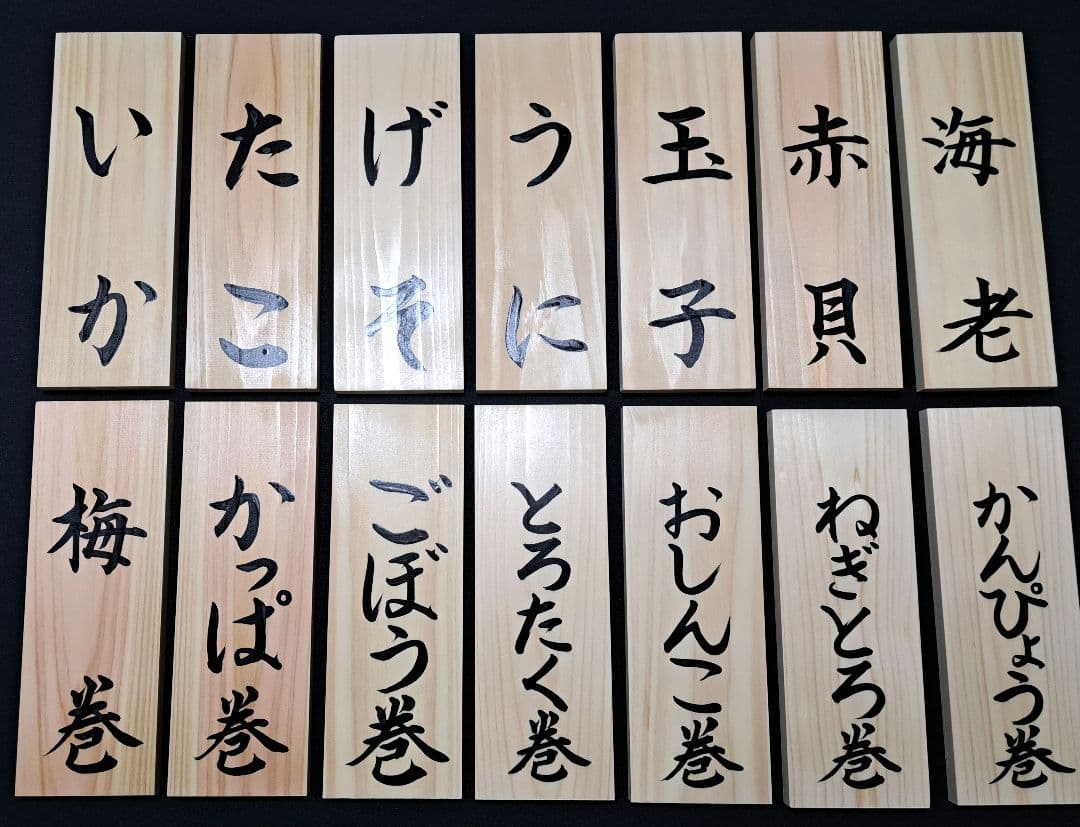 海老
赤貝
玉子
うに
げそ
たこ
いか
かんぴょう巻
ねぎとろ巻
おしんこ巻
とろたく巻
ごぼう巻
かっぱ巻
梅巻